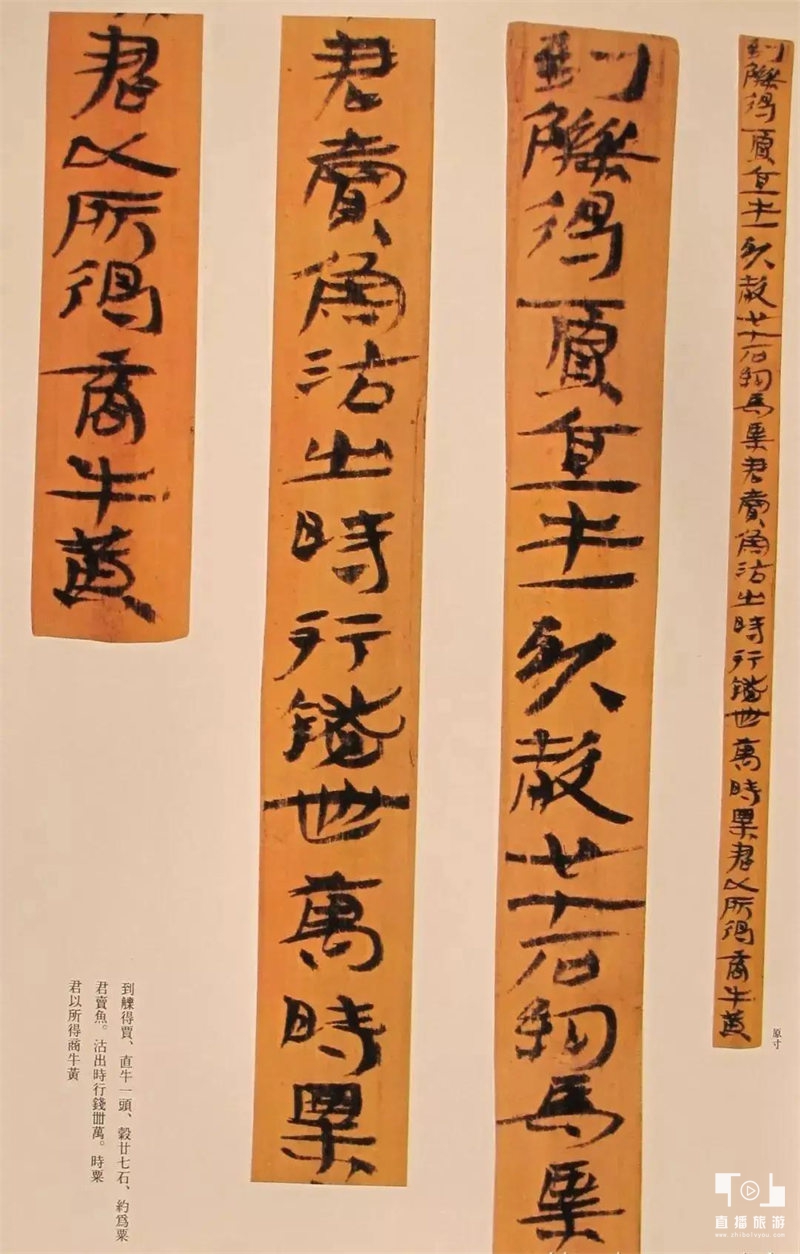 到觻得賈直牛一頭穀廿七石約爲粟君賣魚沽出時行錢卌萬時粟君以所得商牛黃
原寸
到觻得賈直牛一頭穀廿七石約爲粟
君賣魚沽出時行錢卌萬時粟
君以所得商牛黃
到觻得賈、直牛一頭、穀廿七石、約爲粟
君賣魚。沽出時行錢卌萬。時粟
君以所得商牛黃
直播旅游
www.zhibolvyou.com